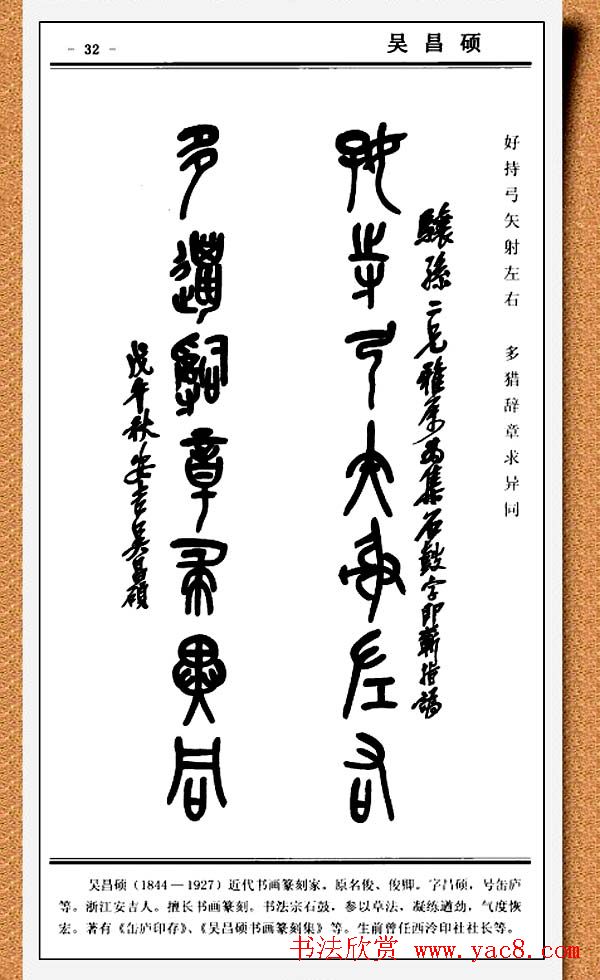 - 32 -
吴昌硕
好持弓矢射左右 多猎辞章求异同
骧孙二兄雅属为集石鼓字即蕲指谬
好寺弓矢射左右
多邋辞章求异同
戊午秋安吉吴昌硕
吴昌硕(1844—1927)近代书画篆刻家。原名俊、俊卿。字昌硕,号缶庐
等。浙江安吉人。擅长书画篆刻。书法宗石鼓,参以草法,凝练遒劲,气度恢
宏。著有《缶庐印存》、《吴昌硕书画篆刻集》等。生前曾任西泠印社社长等。
书法欣赏 www.yac8.com